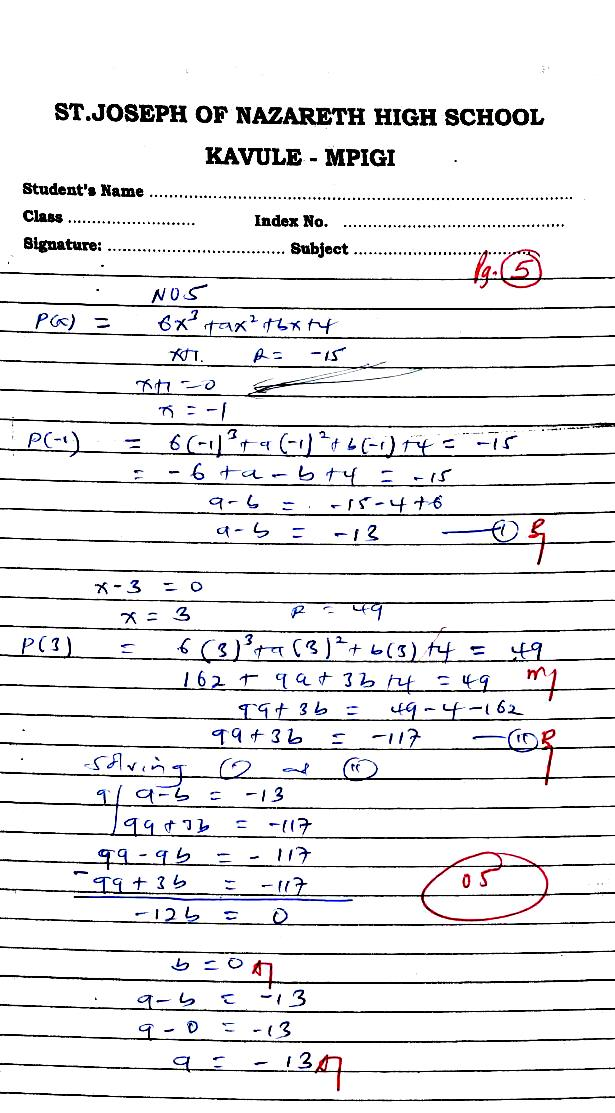 ST.JOSEPH OF NAZARETH HIGH SCHOOL
KAVULE - MPIGI
Student's Name ........................................................................
Class ........................ Index No. ........................................................
Signature: .................................... Subject ..............................................
Pg. 5
NO5
P(x) = 6x³ + ax² + bx + 4
x+1. R = -15
x+1 = 0
x = -1
P(-1) = 6(-1)³ + a(-1)² + b(-1) + 4 = -15
= -6 + a - b + 4 = -15
a - b = -15 - 4 + 6
a - b = -13 — (i) B1
x - 3 = 0
x = 3 R = 49
P(3) = 6(3)³ + a(3)² + b(3) + 4 = 49
162 + 9a + 3b + 4 = 49 M1
9a + 3b = 49 - 4 - 162
9a + 3b = -117 — (ii) B1
Solving (i) and (ii)
9 | a - b = -13
| 9a + 3b = -117
9a - 9b = -117
- 9a + 3b = -117
-12b = 0
05
b = 0 A1
a - b = -13
a - 0 = -13
a = -13 A1